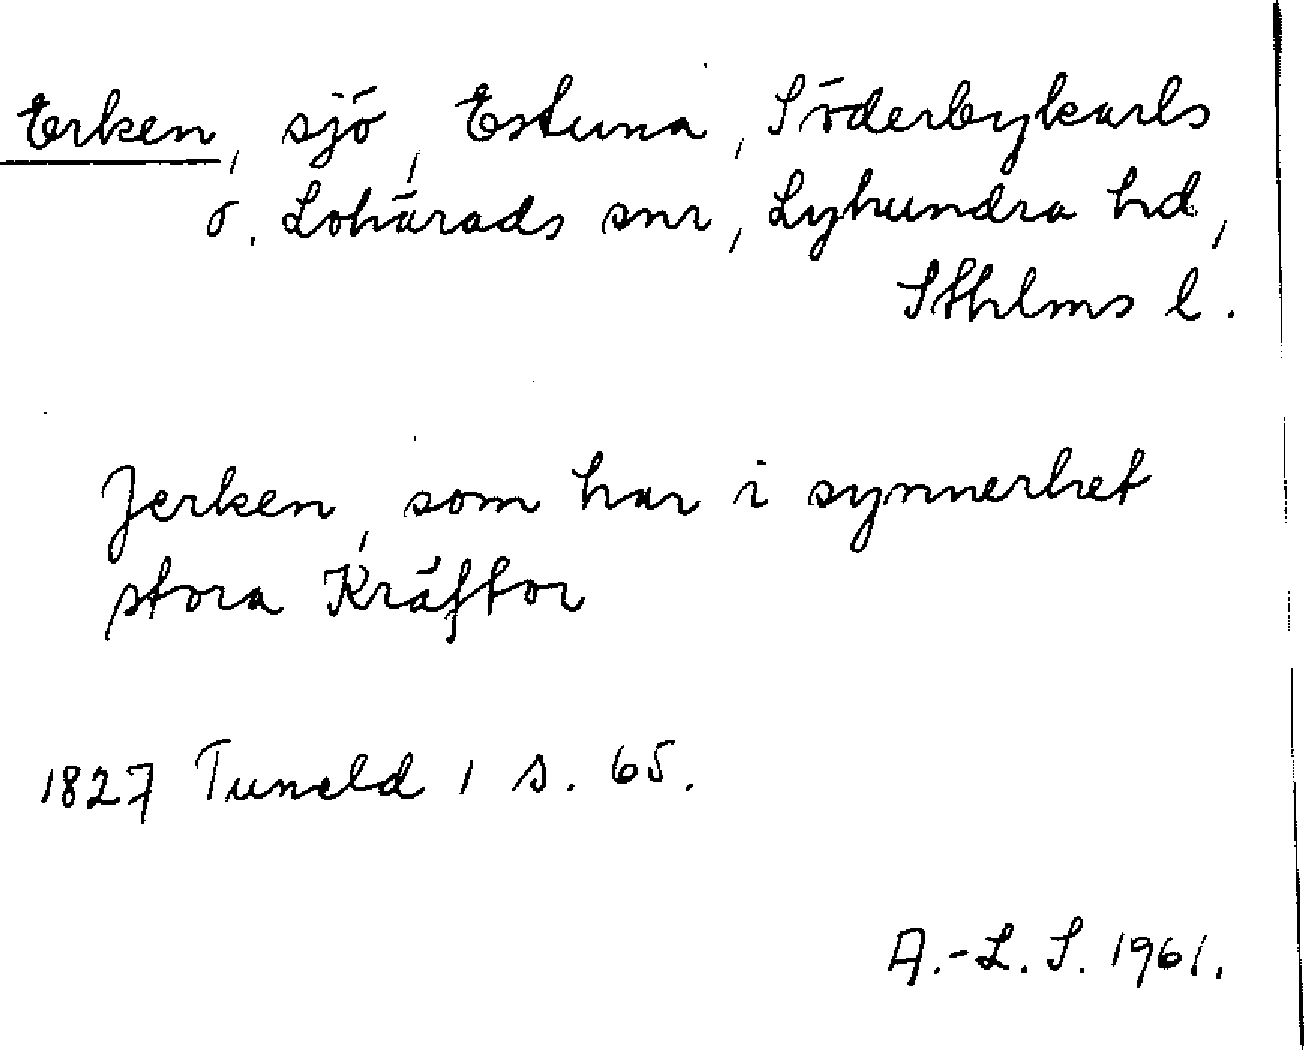 Erken, sjö, Estuna, Söderbykarls
o. Lohärads snr, Lyhundra hd,
Sthlms l.
Jerken, som har i synnerhet
stora Kräftor
1827 Tuneld 1 s. 65.
A.-L. S. 1961.